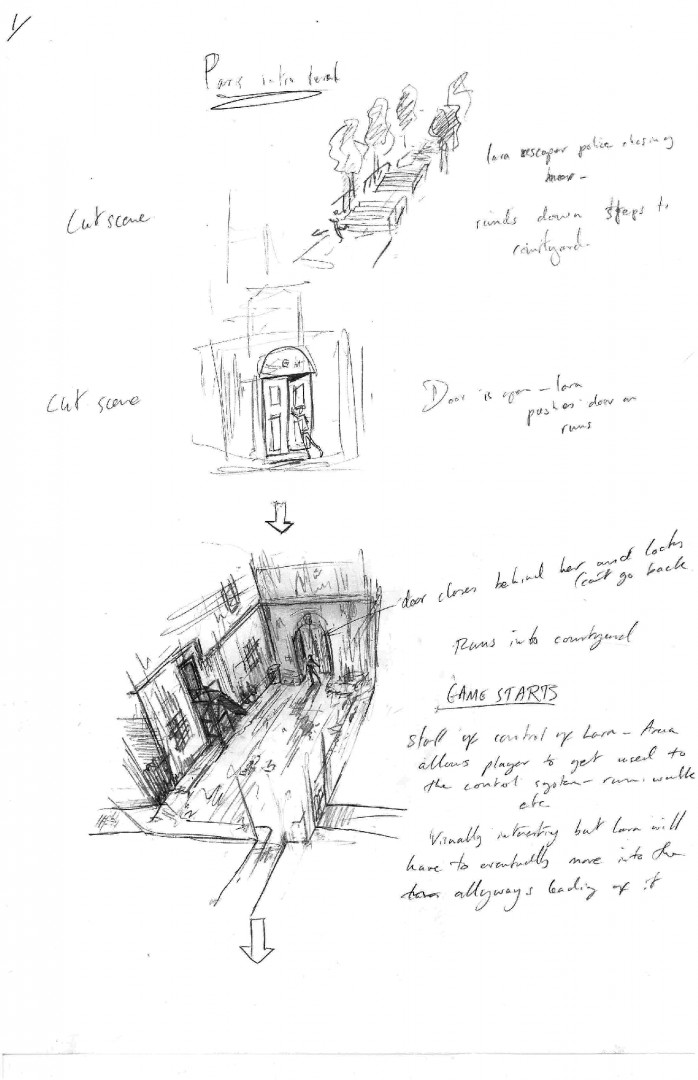 1/
Paris intro level
Lara escapes police chasing
her -
Cut scene
runds down steps to
courtyard.
Cut scene
Door is open - Lara
pushes door an
runs
door closes behind her and locks
(can't go back
Runs into courtyard
GAME STARTS
of control of Lara - Area
allows player to get used to
the control system - run, walk
etc
Visually interesting but Lara will
have to eventually move into the
allyways leading of it